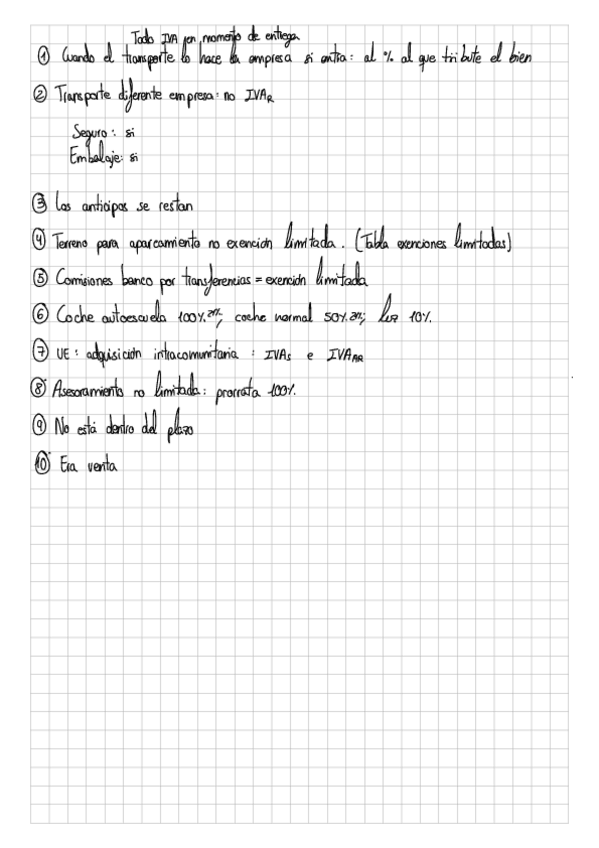 Todo IVA en momento de entrega
① Cuando el transporte lo hace la empresa si entra: al % al que tribute el bien
② Transporte diferente empresa: no IVAR
Seguro: si
Embalaje: si
③ Los anticipos se restan
④ Terreno para aparcamiento no exención limitada. (Tabla exenciones limitadas)
⑤ Comisiones banco por transferencias = exención limitada
⑥ Coche autoescuela 100% 21%, coche normal 50% 21%; luz 10%.
⑦ UE: adquisición intracomunitaria: IVAs e IVAAR
⑧ Asesoramiento no limitada: prorrata 100%.
⑨ No está dentro del plazo
⑩ Era venta